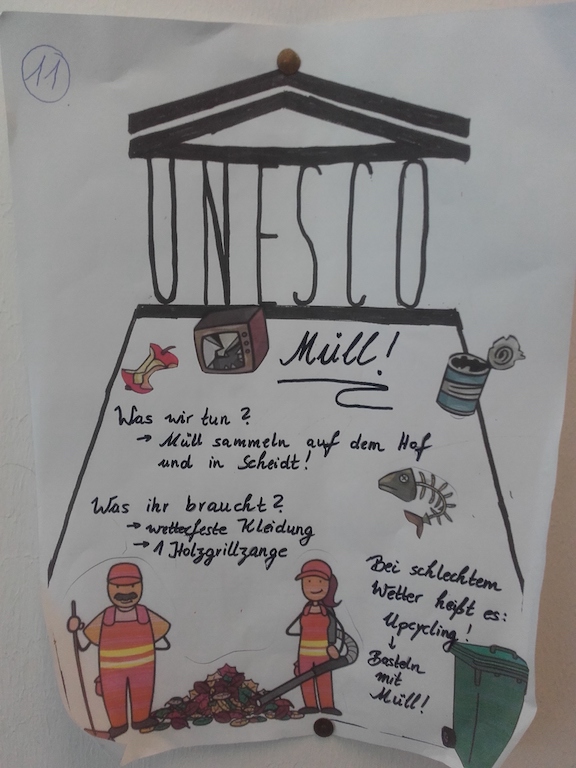 11
UNESCO
Müll!
Was wir tun?
→ Müll sammeln auf dem Hof
und in Scheidt!
Was ihr braucht?
→ wetterfeste Kleidung
→ 1 Holzgrillzange
Bei schlechtem
Wetter heißt es:
Upcycling!
↓
Basteln
mit
Müll!